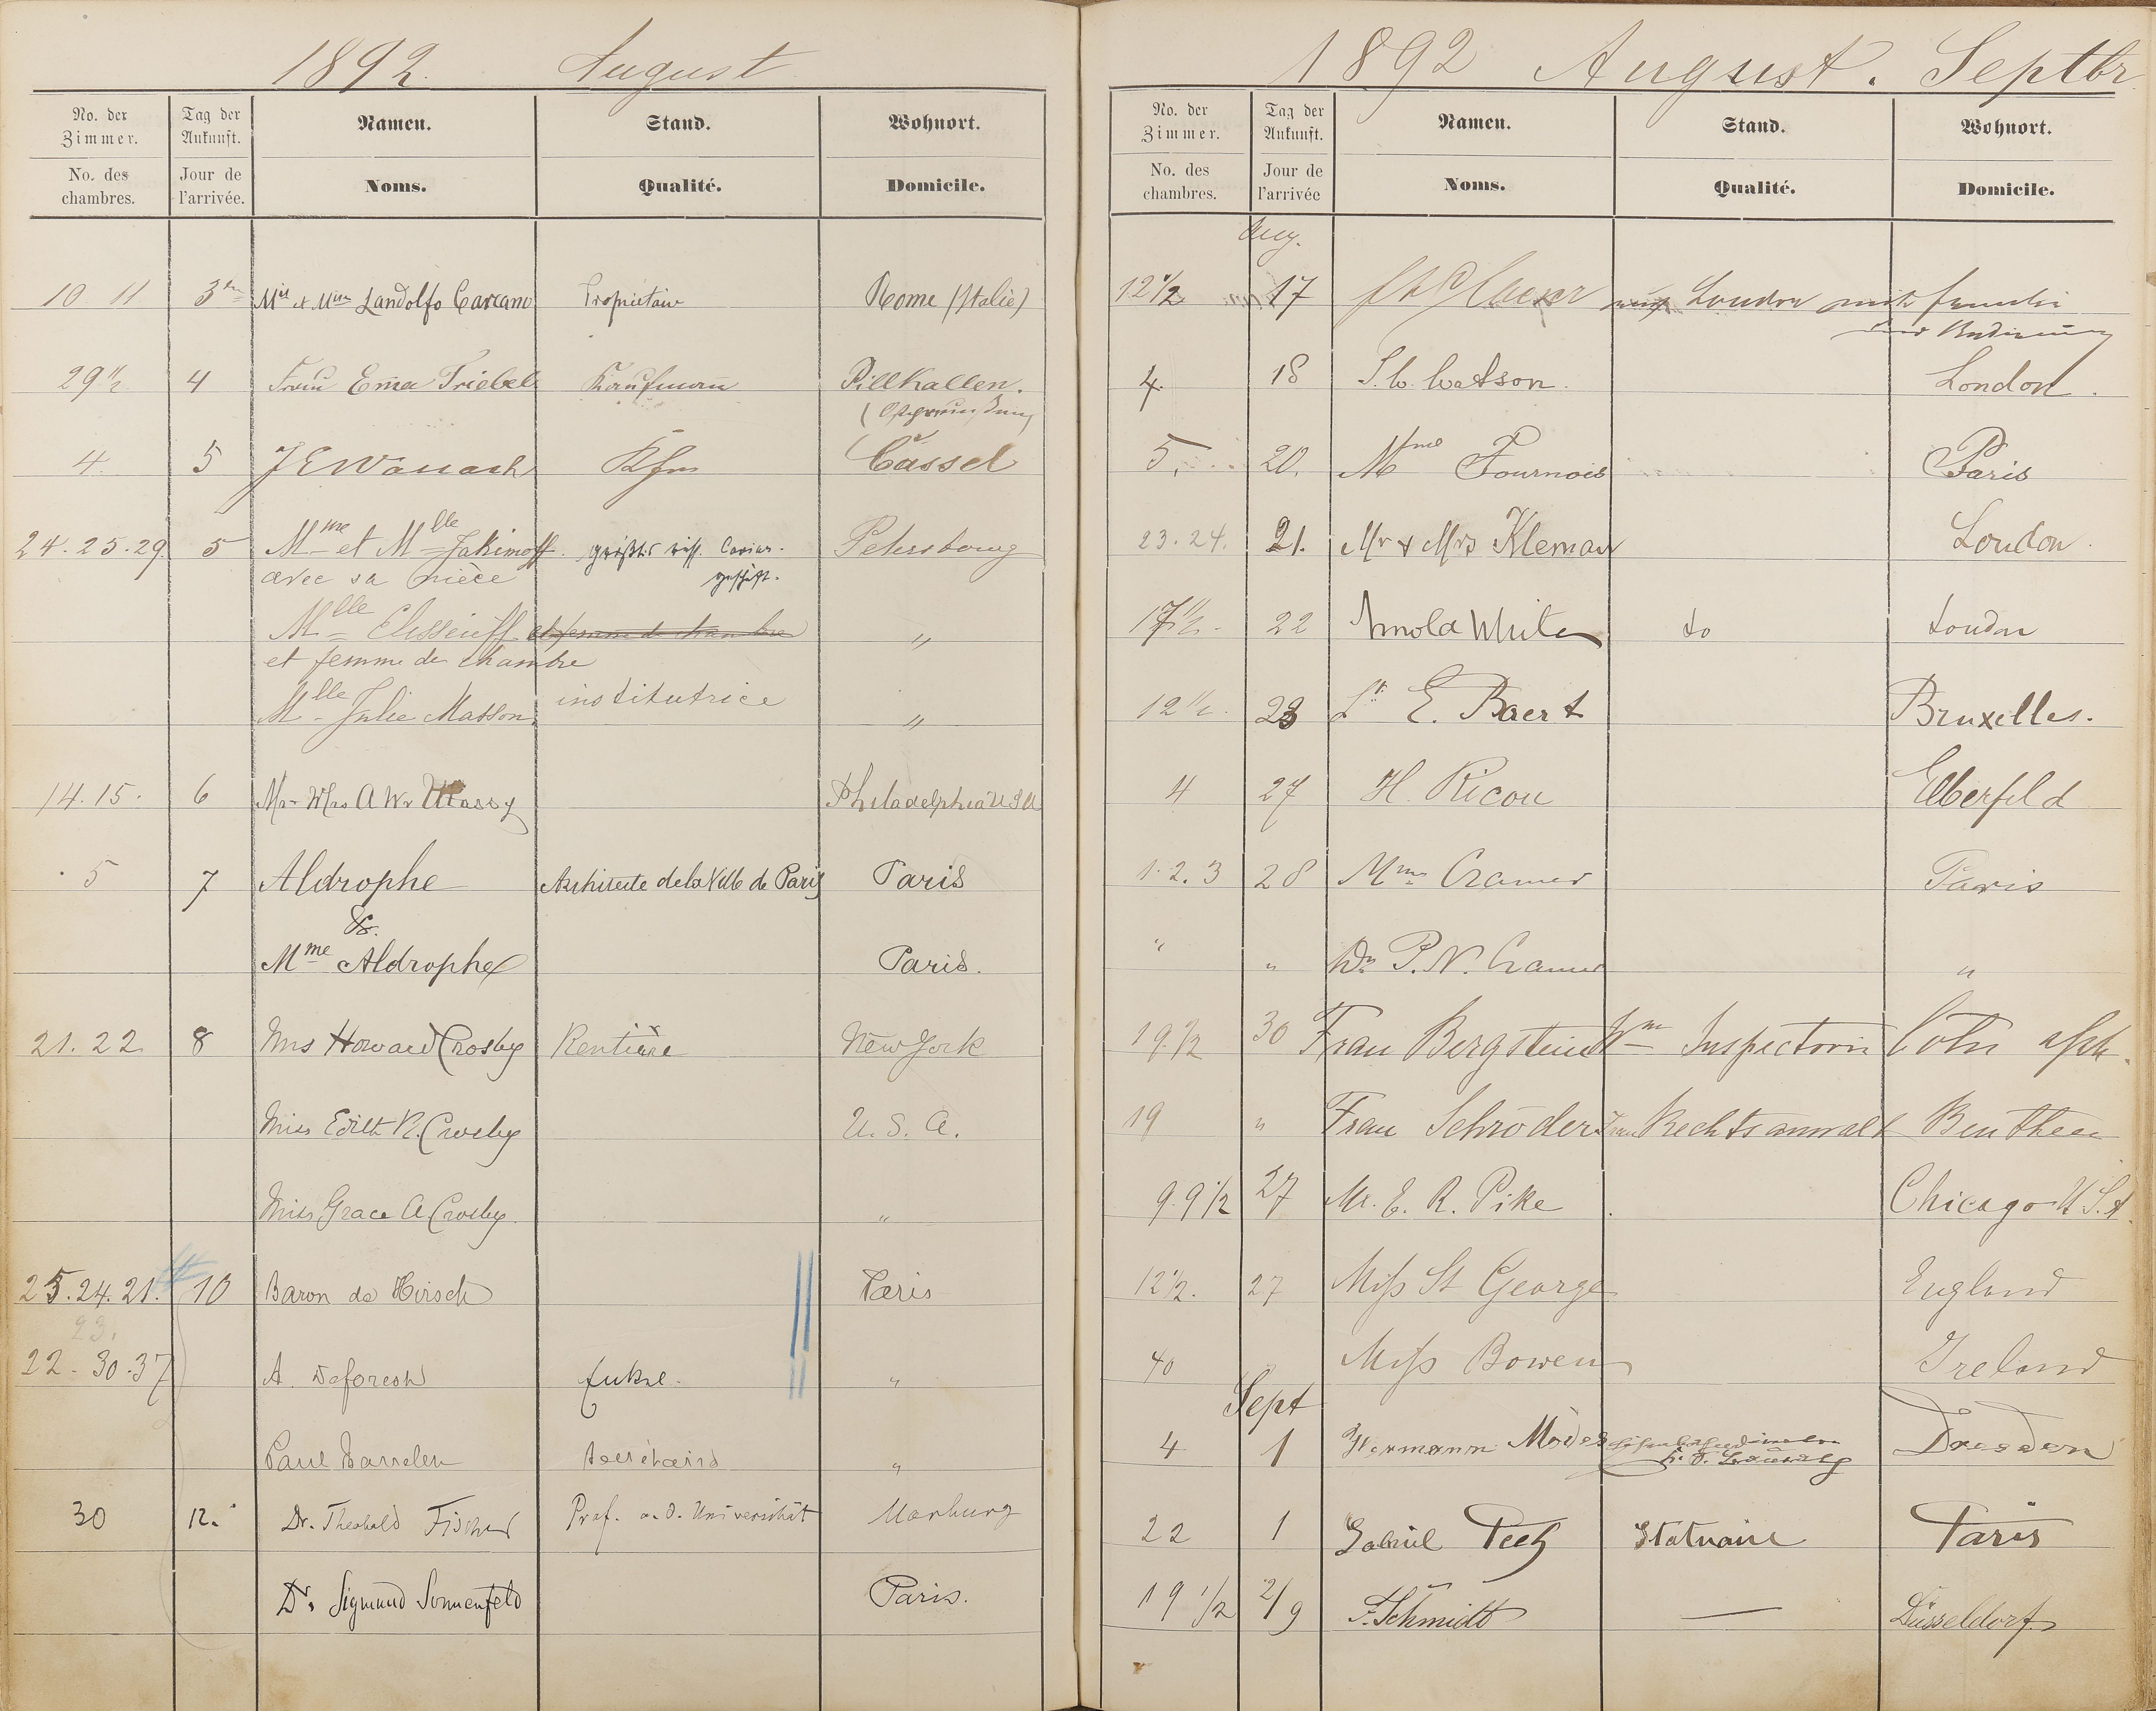 1892. August
No. der Zimmer. Tag der Ankunft. Namen. Stand. Wohnort.
No. des chambres. Jour de l'arrivée. Noms. Qualité. Domicile.
10 11 3 Mr et Mme Landolfo Carcano Propriétaire Rome (Italie)
29 1/2 4 Frau Ema Triebel Kaufmann Pillkallen.
4. 5 Kfm Cassel
24. 25. 29. 5 Mme et Mlle Jakimoff. Petersbourg
avec sa nièce
Mlle Elisseieff "
et femme de chambre
Mlle Julie Masson institutrice "
14. 15. 6 Mr Mrs A W Massy Philadelphia U S A
5 7 Aldrophe Architecte de la Ville de Paris Paris
&
Mme Aldrophe Paris.
21. 22 8 Mrs Howard Crosby Rentière New York
Miss Edith R. Crosby U. S. A.
Miss Grace A Crosby. "
25. 24. 21. 10 Baron de Hirsch Paris
23.
22 - 30. 37 A. Deforest "
Paul Secrétaire "
30 12. Dr. Theobald Fischer Prof. a. d. Universität Marburg
Dr. Sigmund Sonnenfeld Paris.
1892 August. Septbr
No. der Zimmer. Tag der Ankunft. Namen. Stand. Wohnort.
No. des chambres. Jour de l'arrivée Noms. Qualité. Domicile.
Aug.
12 1/2 17 London mit Familie
4. 18 Watson. London.
5. 20. Mme Fournois Paris
23. 24. 21. Mr & Mrs Kleman London.
17 1/2. 22 Arnold White do London
23 E. Baert Bruxelles.
4 27 H. Ricou Elberfeld
1. 2. 3 28 Mme Cramer Paris
" " Dr P. N. Cramer "
19 1/2 30 Frau Bergstein Inspectorin Cöln
19 " Frau Schröder Frau Rechtsanwalt Beuthen
9. 9 1/2 27 Mr. E. R. Pike Chicago U. S. A.
12 1/2. 27 Miss St George England
40 Miss Bowen Ireland
Sept
4 1 Hermann Dresden
22 1 Gabriel Pech Statuaire Paris
19 1/2 2/9 F. Schmidt — Düsseldorf.